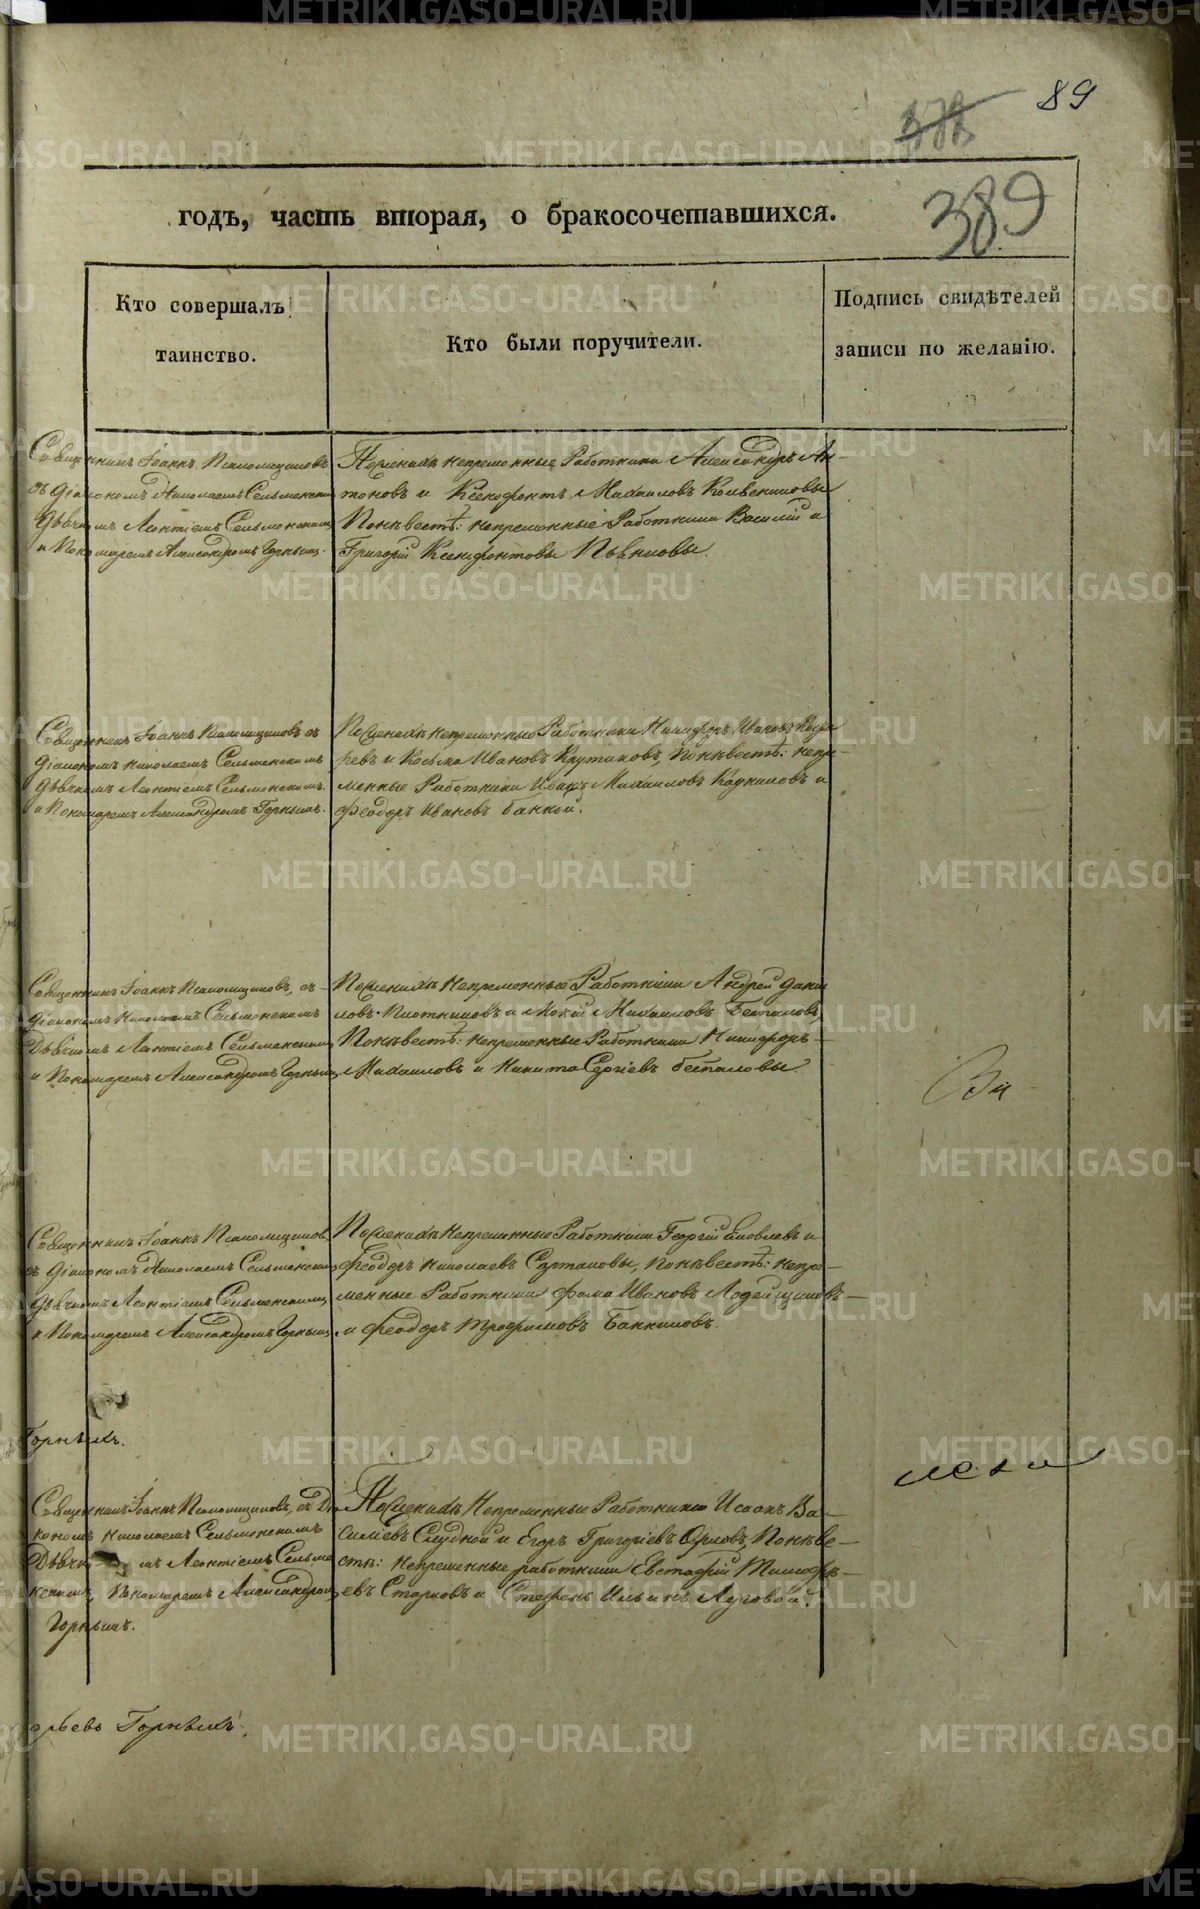 89
389
годъ, часть вторая, о бракосочетавшихся.
Кто совершалъ
таинство.
Кто были поручители.
Подпись свидѣтелей
записи по желанію.
Священникъ Іоаннъ Псаломщиковъ
съ Діакономъ Николаемъ Сельменскимъ
Дьячкомъ Леонтіемъ Сельменскимъ
и Пономаремъ Александромъ Горныхъ.
По женихѣ непременные Работники Александръ Ан-
тоновъ и Ксенофонтъ Михаиловъ
По невестѣ: непременные Работники Василій и
Григорій Ксенофонтовы Пьянковы.
Священникъ Іоаннъ Псаломщиковъ съ
Діакономъ Николаемъ Сельменскимъ
Дьячкомъ Леонтіемъ Сельменскимъ
и Пономаремъ Александромъ Горныхъ.
По женихѣ непременные Работники Никифоръ Ивановъ
ревъ и Косьма Ивановъ Крутиковъ, По невестѣ: непре-
менные Работники Исакъ Михаиловъ и
Феодоръ Ивановъ
Священникъ Іоаннъ Псаломщиковъ, съ
Діакономъ Николаемъ Сельменскимъ
Дьячкомъ Леонтіемъ Сельменскимъ
и Пономаремъ Александромъ Горныхъ
По женихѣ Непременные Работники Андрей Дани
ловъ Плотниковъ и Мокій Михаиловъ Беспаловъ,
По невестѣ: непременные Работники Никифоръ
Михаиловъ и Никита Сергіевъ Беспаловы.
За
Священникъ Іоаннъ Псаломщиковъ
съ Діакономъ Николаемъ Сельменскимъ
Дьячкомъ Леонтіемъ Сельменскимъ
и Пономаремъ Александромъ Горныхъ.
По женихѣ Непременные Работники Георгій Яковлевъ и
Феодоръ Николаевъ Сартаковы, По невестѣ: непре-
менные Работники Фома Ивановъ Лодейщиковъ
и Феодоръ Трофимовъ Банниковъ.
Горныхъ.
Священникъ Іоаннъ Псаломщиковъ, съ Діа
кономъ Николаемъ Сельменскимъ
Дьячкомъ Леонтіемъ Сельме
нскимъ, Пономаремъ Александромъ
Горныхъ.
По женихѣ Непременные Работники Исаакъ Ва-
сильевъ Слудной и Егоръ Григорьевъ Орловъ, По неве-
стѣ: Непременные работники Евстафій Тимофе-
евъ Старковъ и Стефанъ Ильинъ Луговой.
Горныхъ.
METRIKI.GASO-URAL.RU